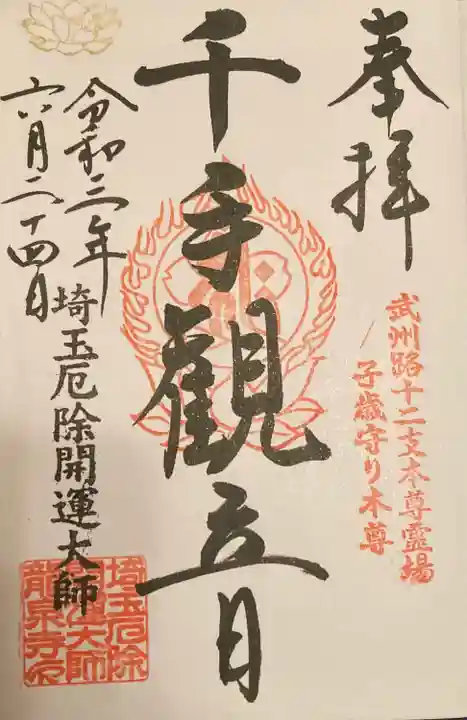 奉拝
武州路十二支本尊霊場
/子歳守り本尊
千手観立日
埼玉厄除開運大師
令和三年
六月二十四日
埼玉厄除
開運大師
龍泉寺印